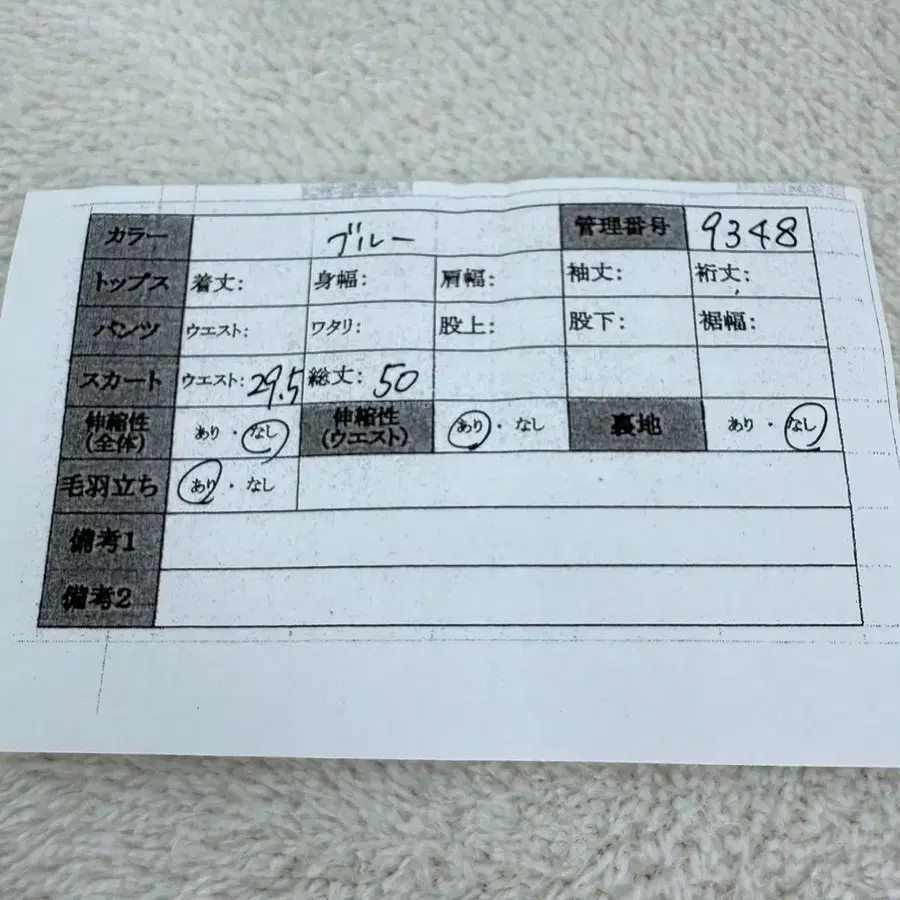 カラー ブルー 管理番号 9348
トップス 着丈: 身幅: 肩幅: 袖丈: 裄丈:
パンツ ウエスト: ワタリ: 股上: 股下: 裾幅:
スカート ウエスト: 29.5 総丈: 50
伸縮性(全体) あり・なし 伸縮性(ウエスト) あり・なし 裏地 あり・なし
毛羽立ち あり・なし
備考1
備考2